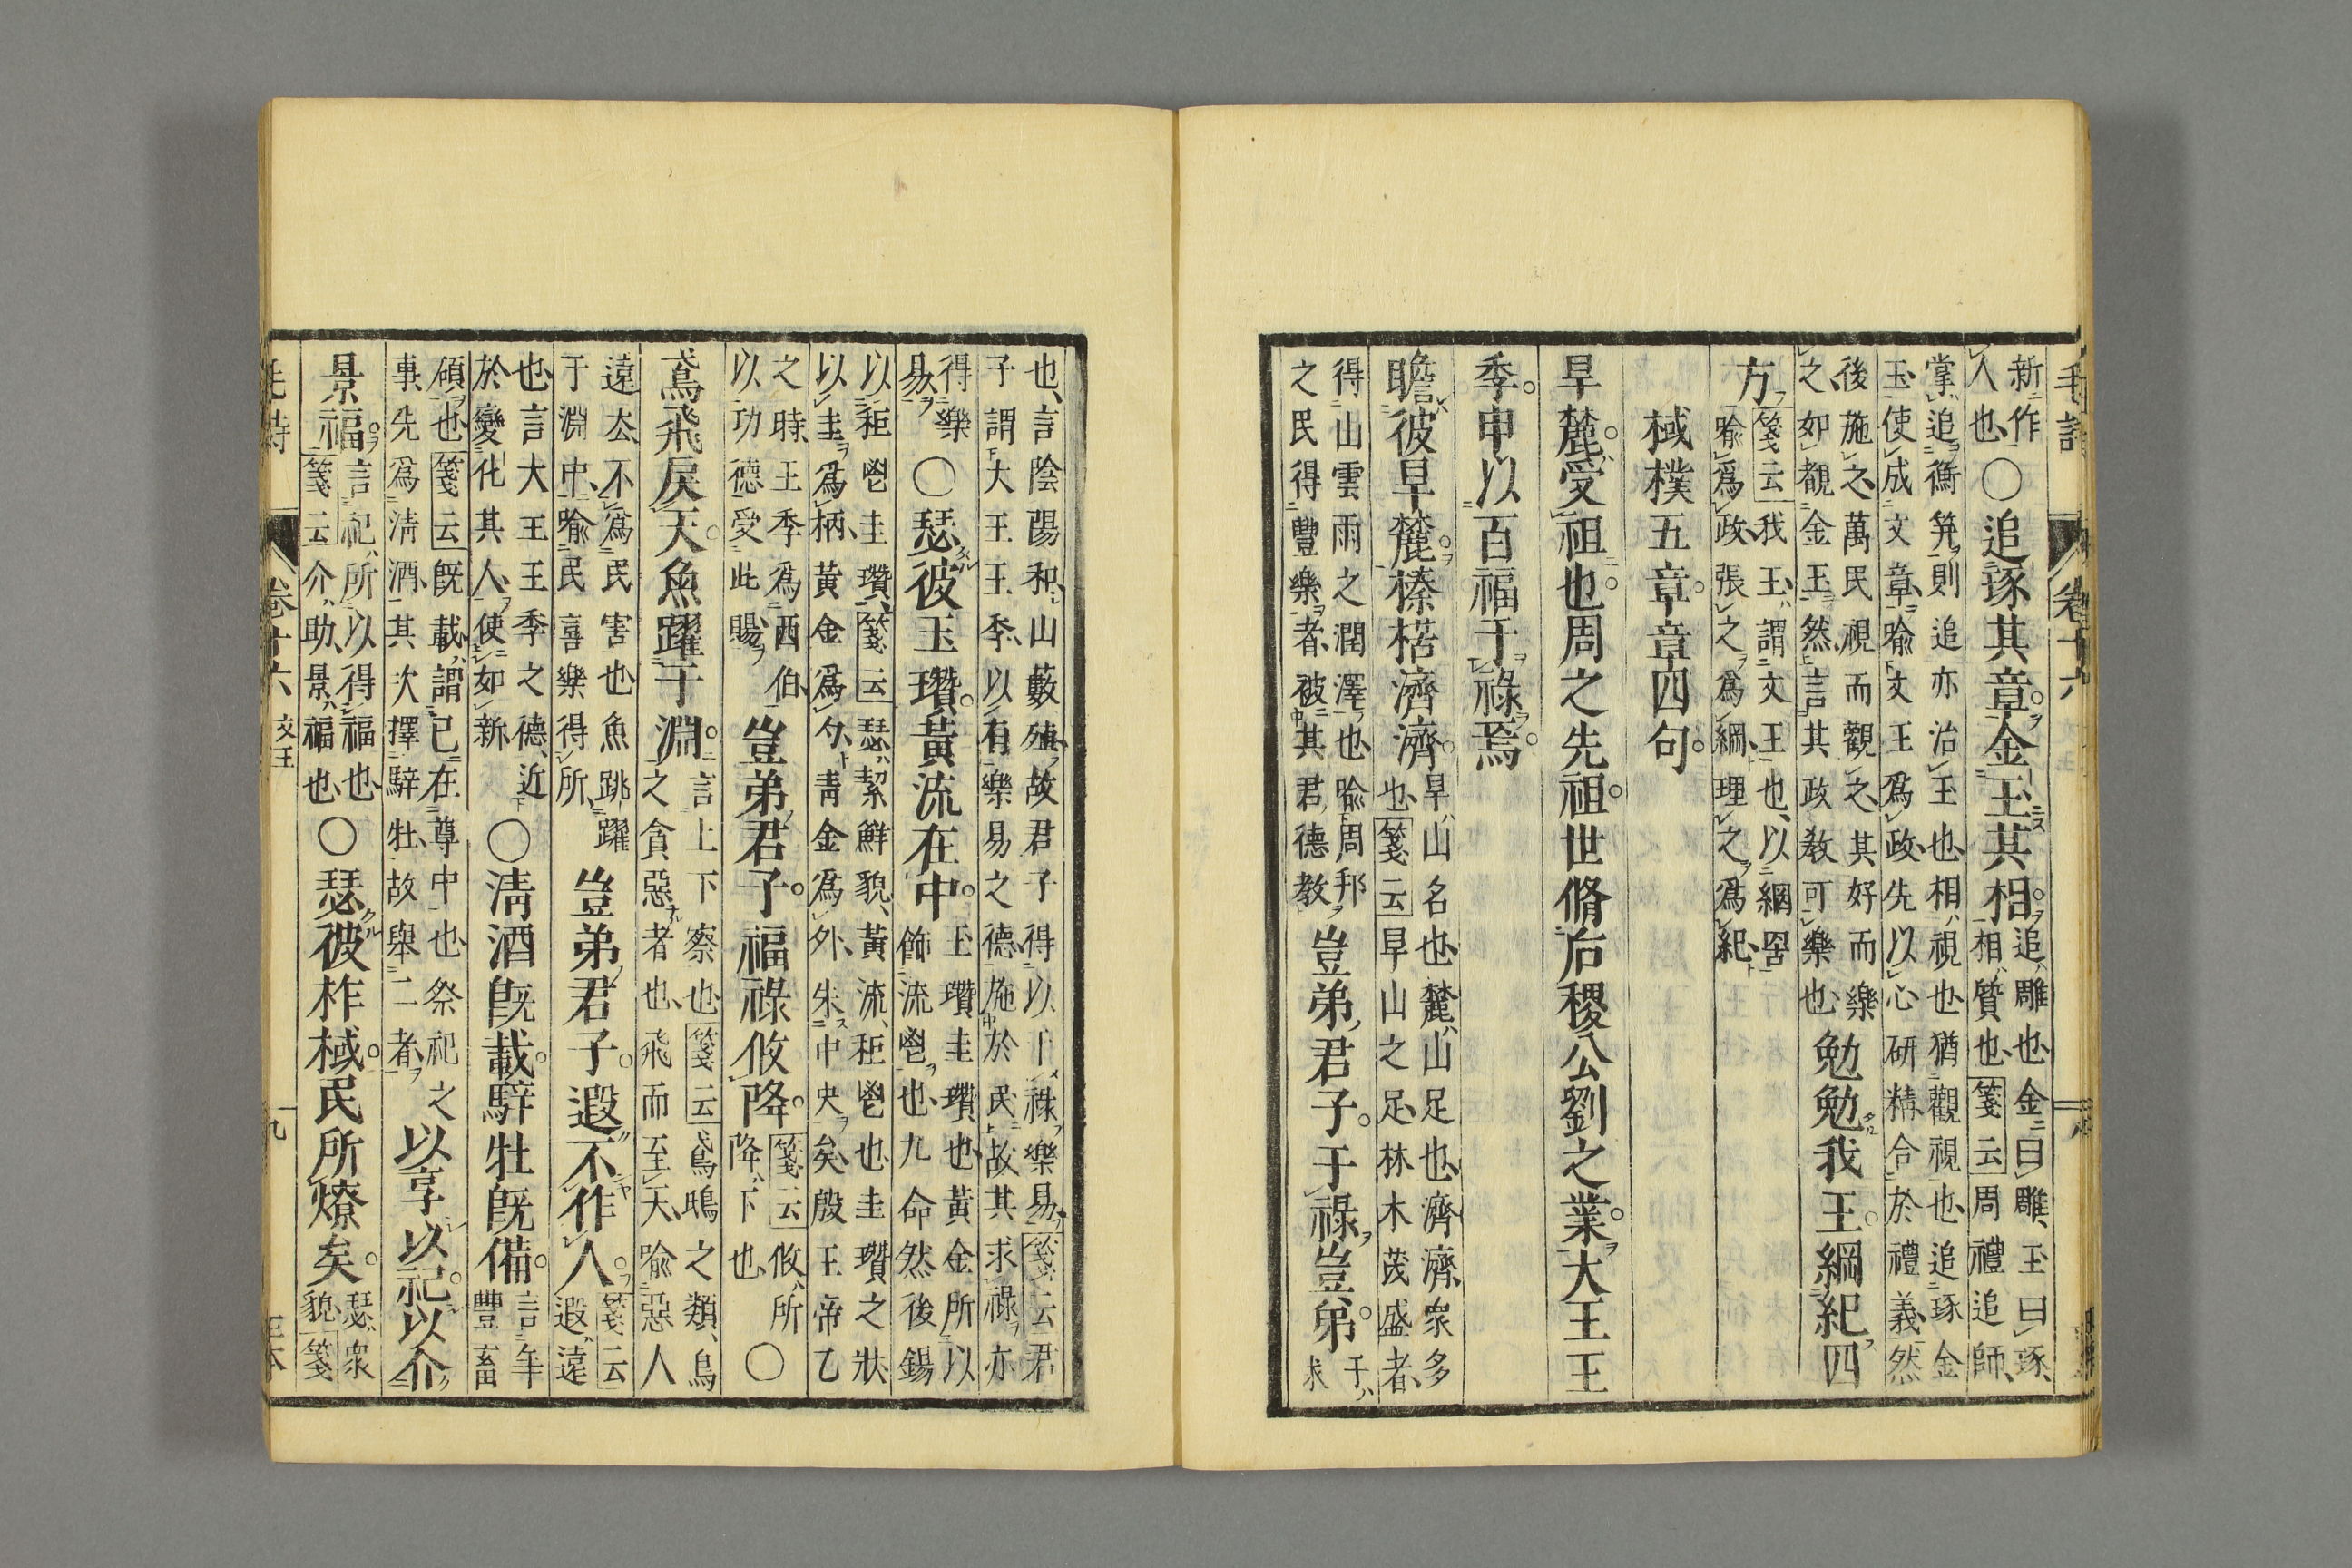 新作
人也○追琢其章金玉其相追雕也金曰雕玉曰琢
相質也箋云周禮追師
掌追衡筓則追亦治玉也相視也猶觀視也追琢金
玉使成文章喻文王爲政先以心研精合於禮義然
後施之萬民視而觀之其好而樂
之如覩金玉然言其政教可樂也勉勉我王綱紀四
方箋云我王謂文王也以網罟
喻爲政張之爲綱理之爲紀
棫樸五章章四句
旱麓受祖也周之先祖世脩后稷公劉之業大王王
季申以百福干祿焉
瞻彼旱麓榛楛濟濟旱山名也麓山足也濟濟衆多
也箋云旱山之足林木茂盛者
得山雲雨之潤澤也喻周邦
之民得豐樂者被其君德教豈弟君子干祿豈弟干
求
毛詩 卷十六 八
也言陰陽和山藪殖故君子得以干祿樂易箋云君
子謂大王王季以有樂易之德施於民故其求祿亦
得樂
易○瑟彼玉瓚黃流在中玉瓚圭瓚也黃金所以
飾流鬯也九命然後錫
以秬鬯圭瓚箋云瑟絜鮮貌黃流秬鬯也圭瓚之狀
以圭爲柄黃金爲勺靑金爲外朱中央矣殷王帝乙
之時王季爲西伯
以功德受此賜豈弟君子福祿攸降箋云攸所
降下也○
鳶飛戾天魚躍于淵言上下察也箋云鳶鴟之類鳥
之貪惡者也飛而至天喻惡人
遠去不爲民害也魚跳躍
于淵中喻民喜樂得所豈弟君子遐不作人箋云
遐遠
也言大王王季之德近
於變化其人使如新○淸酒旣載騂牡旣備言年
豐畜
碩也箋云旣載謂已在尊中也祭祀之
事先爲淸酒其次擇騂牡故舉二者以享以祀以介
景福言祀所以得福也
箋云介助景福也○瑟彼柞棫民所燎矣瑟衆
貌箋
毛詩 卷十六 文王 九